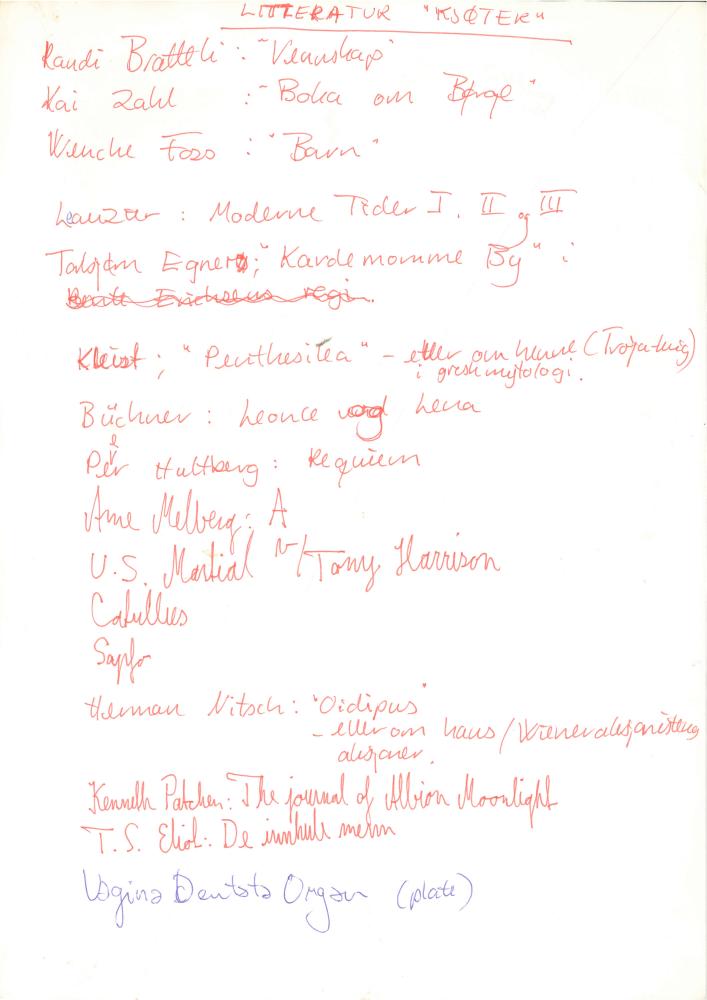 LITTERATUR "KJØTER"
Randi Bratteli : "Vennskap"
Kai Zahl : "Boka om Børge"
Wenche Foss : "Barn"
Lanzer : Moderne Tider I, II og III
Torbjørn Egner ; "Kardemomme By" i
Bentt Erichsens regi.
Kleist ; "Penthesilea" – eller om henne (Troja-krig)
i gresk mytologi.
Büchner : Leonce og Lena
Peer Hultberg : Requiem
Arne Melberg : A
U.S. Martial v/Tony Harrison
Catullus
Sapfo
Herman Nitsch : "Oidipus"
– eller om hans / Wieneraksjonistenes
aksjoner.
Kenneth Patchen : The journal of Albion Moonlight
T.S. Eliot : De innhule menn
Vagina Dentata Organ (plate)